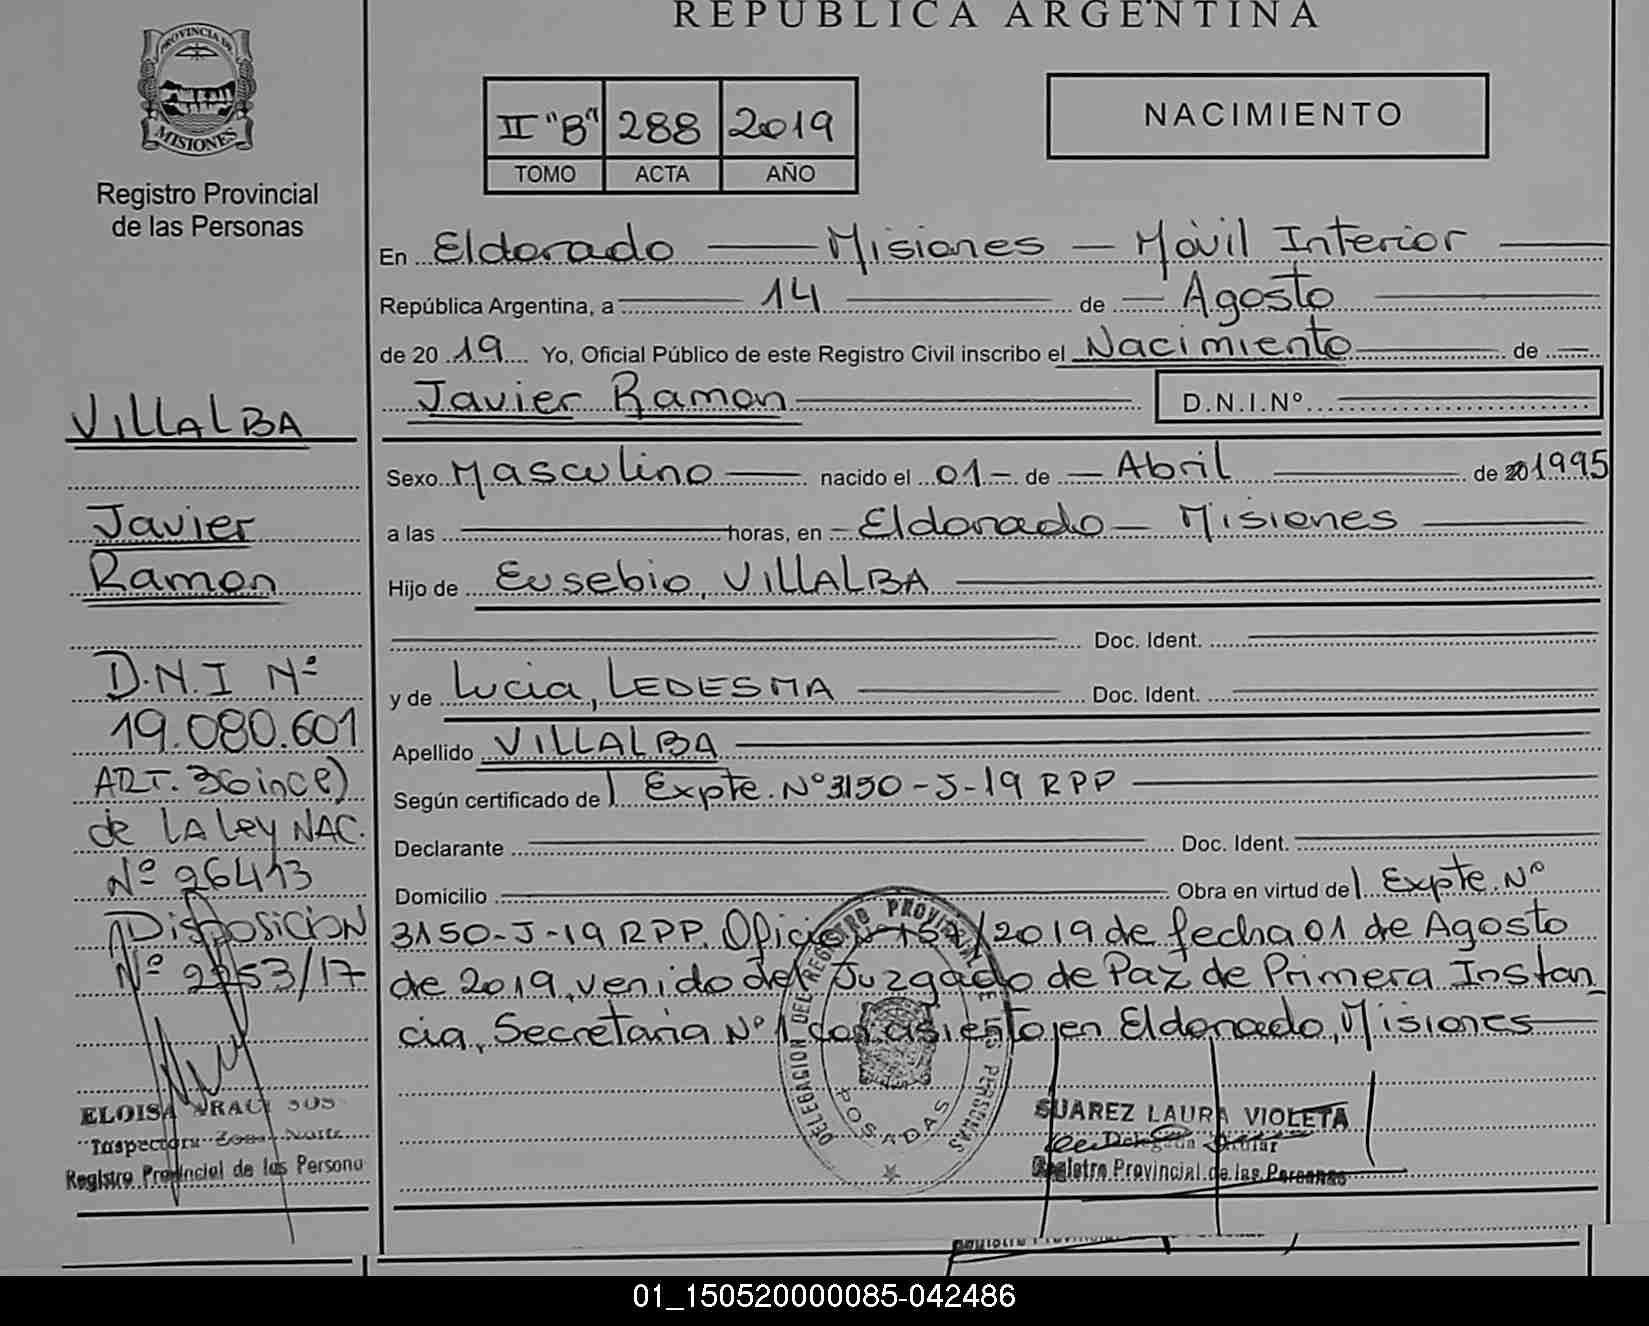 REPUBLICA ARGENTINA
PROVINCIA DE
MISIONES
Registro Provincial
de las Personas
II "B" 288 2019
TOMO ACTA AÑO
NACIMIENTO
En Eldorado Misiones - Móvil Interior
República Argentina, a 14 de Agosto
de 20 19 Yo, Oficial Público de este Registro Civil inscribo el Nacimiento de
Javier Ramon D.N.I.Nº
Sexo Masculino nacido el 01 - de Abril de 20 1995
a las horas, en - Eldorado - Misiones
Hijo de Eusebio, VILLALBA
Doc. Ident.
y de Lucia, LEDESMA Doc. Ident.
Apellido VILLALBA
Según certificado de Expte. Nº 3150-J-19 RPP
Declarante Doc. Ident.
Domicilio Obra en virtud de Expte. Nº
3150-J-19 RPP. Oficio /2019 de fecha 01 de Agosto
de 2019, venido del Juzgado de Paz de Primera Instan
cia, Secretaria Nº 1 con asiento en Eldorado, Misiones
VILLALBA
Javier
Ramon
D.N.I Nº
19.080.601
ART. 36 inc e)
de LA Ley NAC.
Nº 26413
Disposicion
Nº /17
ELOISA
Inspectora Zona Norte
Registro Provincial de las Persona
DELEGACION DEL REGISTRO PROVINCIAL DE LAS PERSONAS
POSADAS
SUAREZ LAURA VIOLETA
Registro Provincial de las Personas
01_150520000085-042486